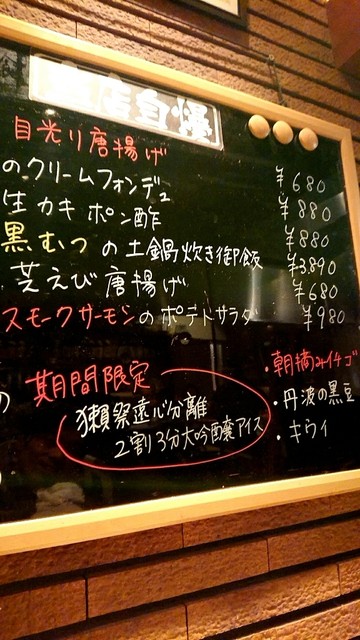 店自爆
目光り唐揚げ
のクリームフォンデュ ¥680
生カキポン酢 ¥880
黒むつの土鍋炊き御飯 ¥880
芝えび唐揚げ ¥3,890
スモークサーモンのポテトサラダ ¥680
¥980
期間限定
獺祭遠心分離
2割3分大吟醸アイス
・朝摘みイチゴ
・丹波の黒豆
・キウイ